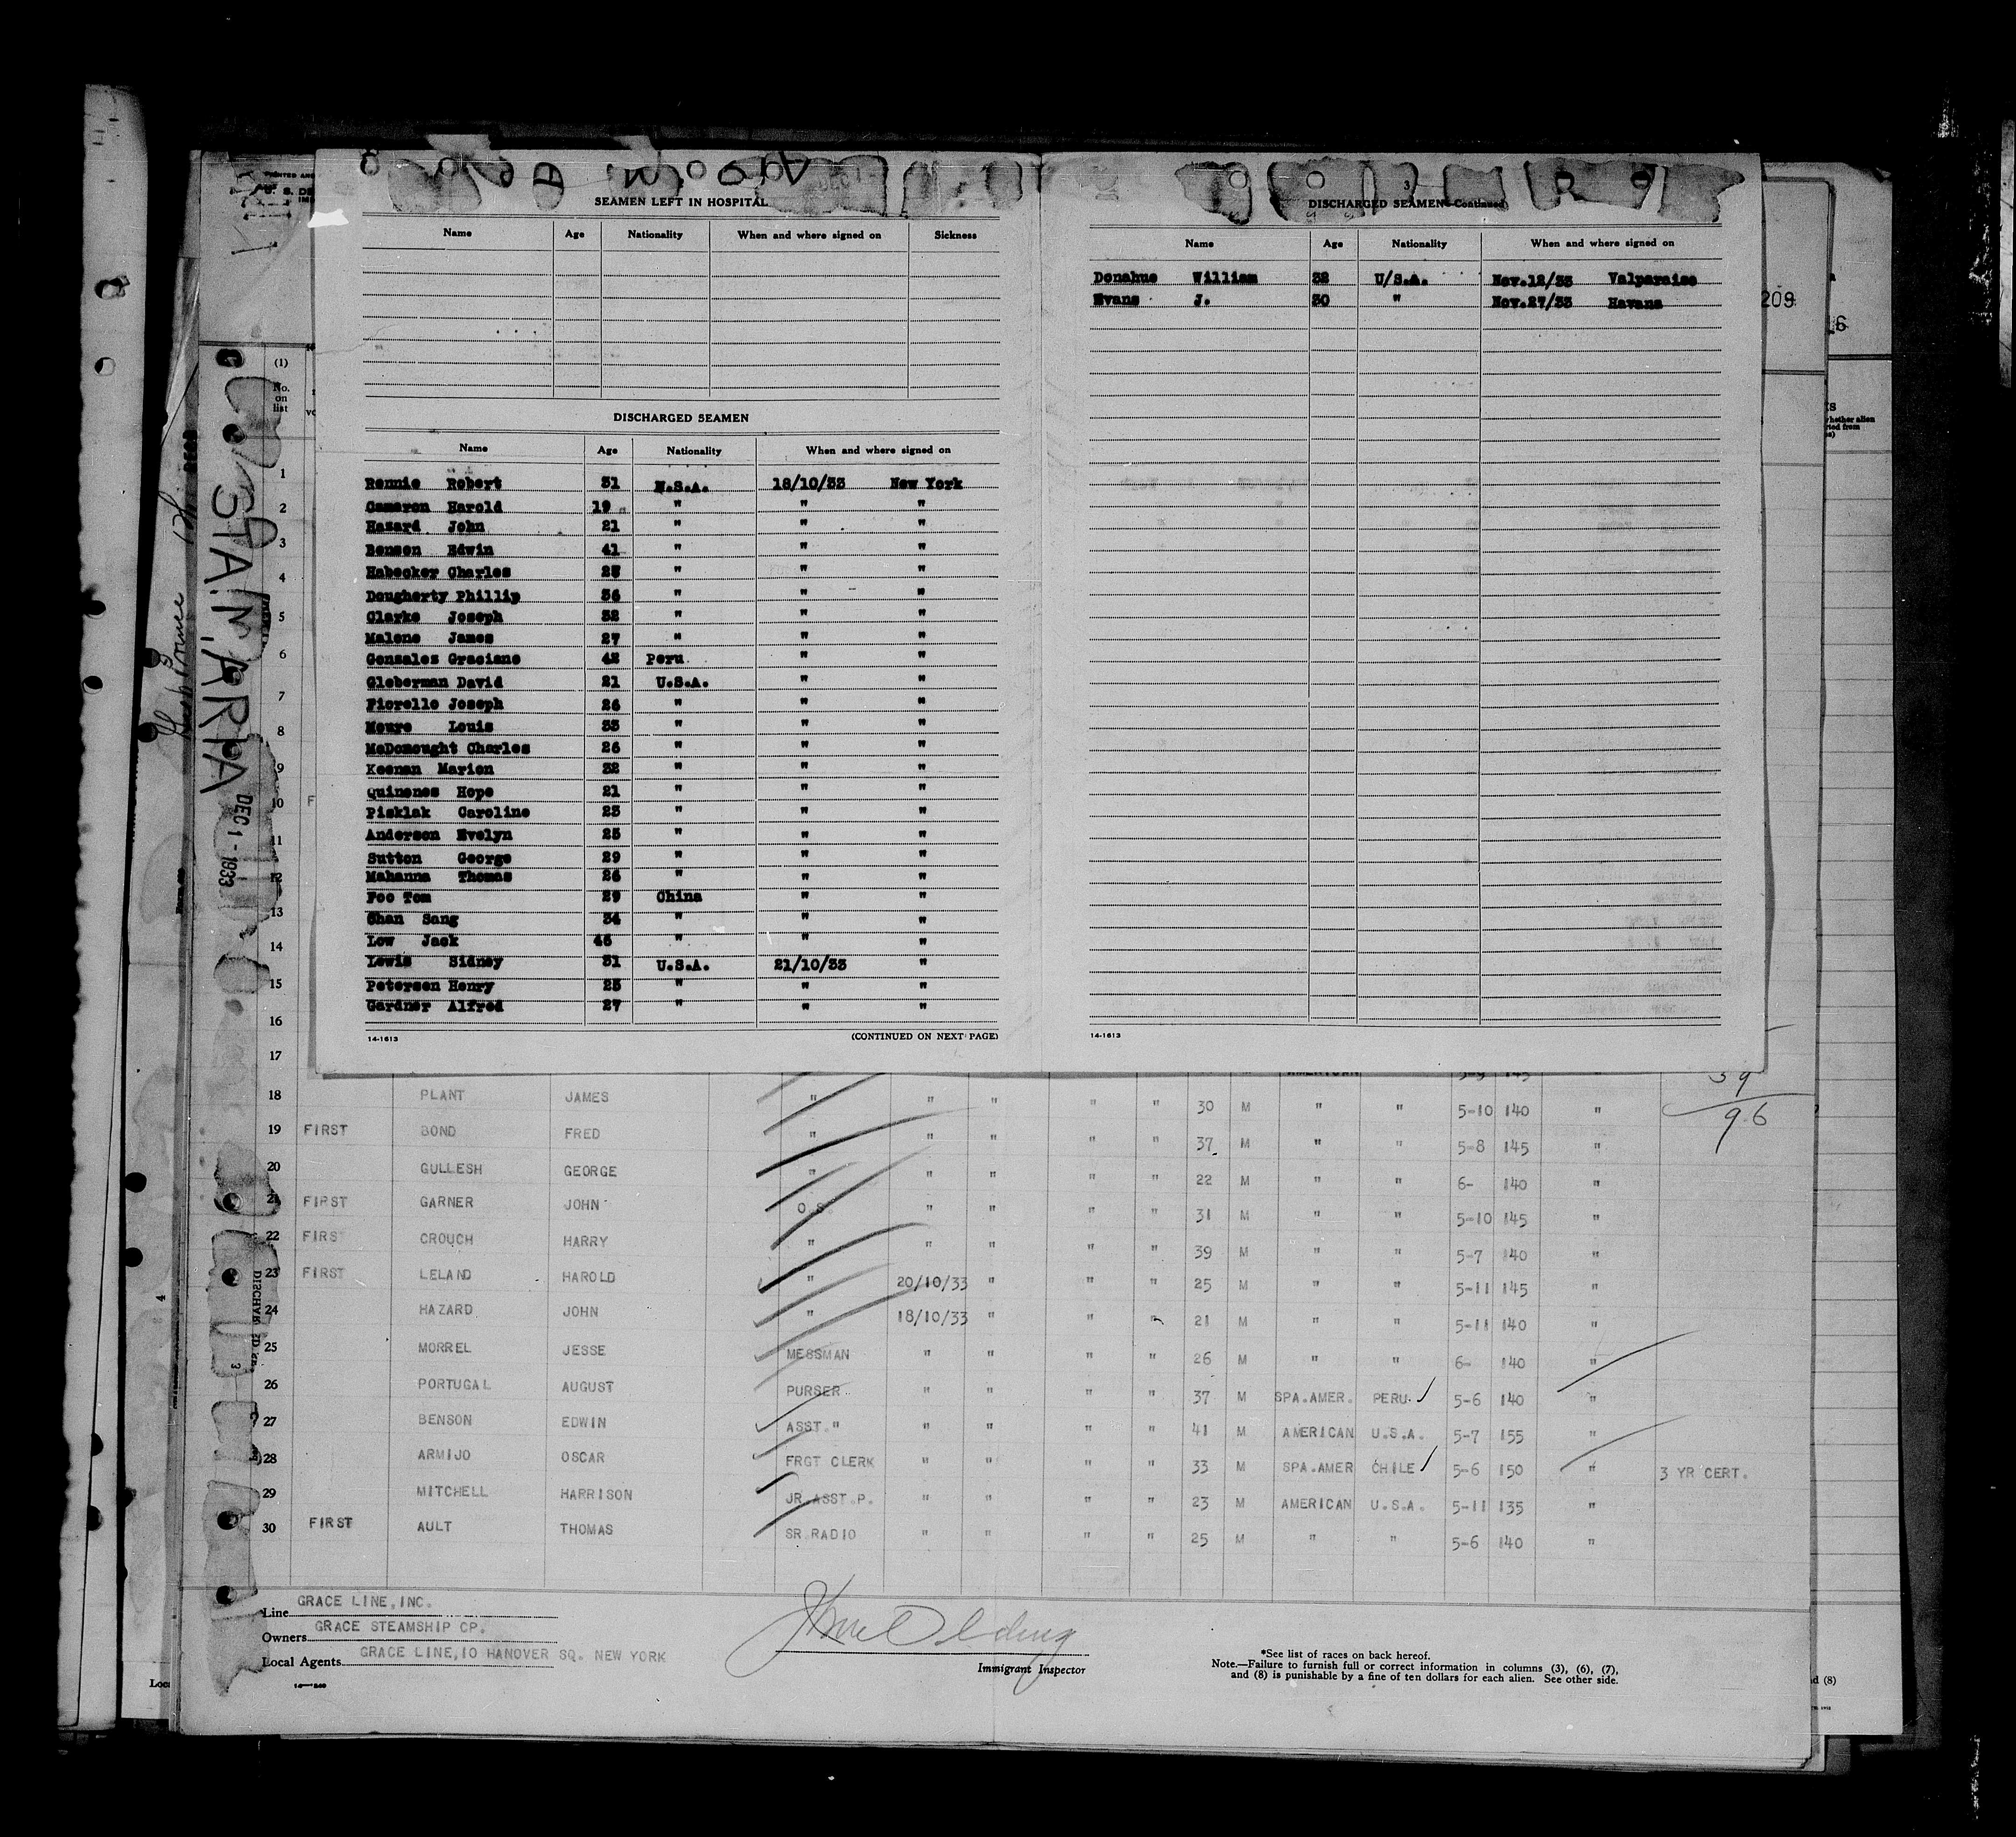 SEAMEN LEFT IN HOSPITAL
Name Age Nationality When and where signed on Sickness
DISCHARGED SEAMEN
Name Age Nationality When and where signed on
Rennie Robert 31 U.S.A. 18/10/33 New York
Cameron Harold 19 " " "
Hazard John 21 " " "
Benson Edwin 41 " " "
Habecker Charles 25 " " "
Dougherty Phillip 36 " " "
Clarke Joseph 32 " " "
Malone James 27 " " "
Gonzales Graciano 42 Peru " "
Gleberman David 21 U.S.A. " "
Fiorello Joseph 26 " " "
Louis 33 " " "
McDonought Charles 26 " " "
Keenan Marion 32 " " "
Quinones Hope 21 " " "
Pisklak Caroline 23 " " "
Anderson Evelyn 25 " " "
Sutton George 29 " " "
Mahanna Thomas 26 " " "
Foo Tom 29 China " "
Chan Sang 34 " " "
Low Jack 46 " " "
Lewis Sidney 31 U.S.A. 21/10/33 "
Petersen Henry 25 " " "
Gardner Alfred 27 " " "
14-1613 (CONTINUED ON NEXT PAGE)
3
DISCHARGED SEAMEN—Continued
Name Age Nationality When and where signed on
Donahue William 32 U/S.A. Nov.12/33 Valparaiso
Evans J. 30 " Nov.27/33 Havana
14-1613
209
6
STA. MARRA
DEC 1 - 1933
(1)
No. on list
1
2
3
4
5
6
7
8
9
10 F
11
12
13
14
15
16
17 AMERICAN 5-9 145 "
39
96
18 PLANT JAMES " " " " " 30 M " " 5-10 140 "
19 FIRST BOND FRED " " " " " 37 M " " 5-8 145 "
20 GULLESH GEORGE " " " " " 22 M " " 6- 140 "
21 FIRST GARNER JOHN O.S. " " " " 31 M " " 5-10 145 "
22 FIRS CROUCH HARRY " " " " " 39 M " " 5-7 140 "
23 FIRST LELAND HAROLD " 20/10/33 " " " 25 M " " 5-11 145 "
24 HAZARD JOHN " 18/10/33 " " " 21 M " " 5-11 140 "
25 MORREL JESSE MESSMAN " " " " 26 M " " 6- 140 "
26 PORTUGAL AUGUST PURSER " " " " 37 M SPA.AMER. PERU 5-6 140 "
27 BENSON EDWIN ASST." " " " " 41 M AMERICAN U.S.A. 5-7 155 "
28 ARMIJO OSCAR FRGT CLERK " " " " 33 M SPA.AMER CHILE 5-6 150 " 3 YR CERT.
29 MITCHELL HARRISON JR.ASST.P. " " " " 23 M AMERICAN U.S.A. 5-11 135 "
30 FIRST AULT THOMAS SR.RADIO " " " " 25 M " " 5-6 140 "
Line GRACE LINE,INC.
Owners GRACE STEAMSHIP CP.
Local Agents GRACE LINE,10 HANOVER SQ. NEW YORK
Immigrant Inspector
*See list of races on back hereof.
Note.—Failure to furnish full or correct information in columns (3), (6), (7),
and (8) is punishable by a fine of ten dollars for each alien. See other side.